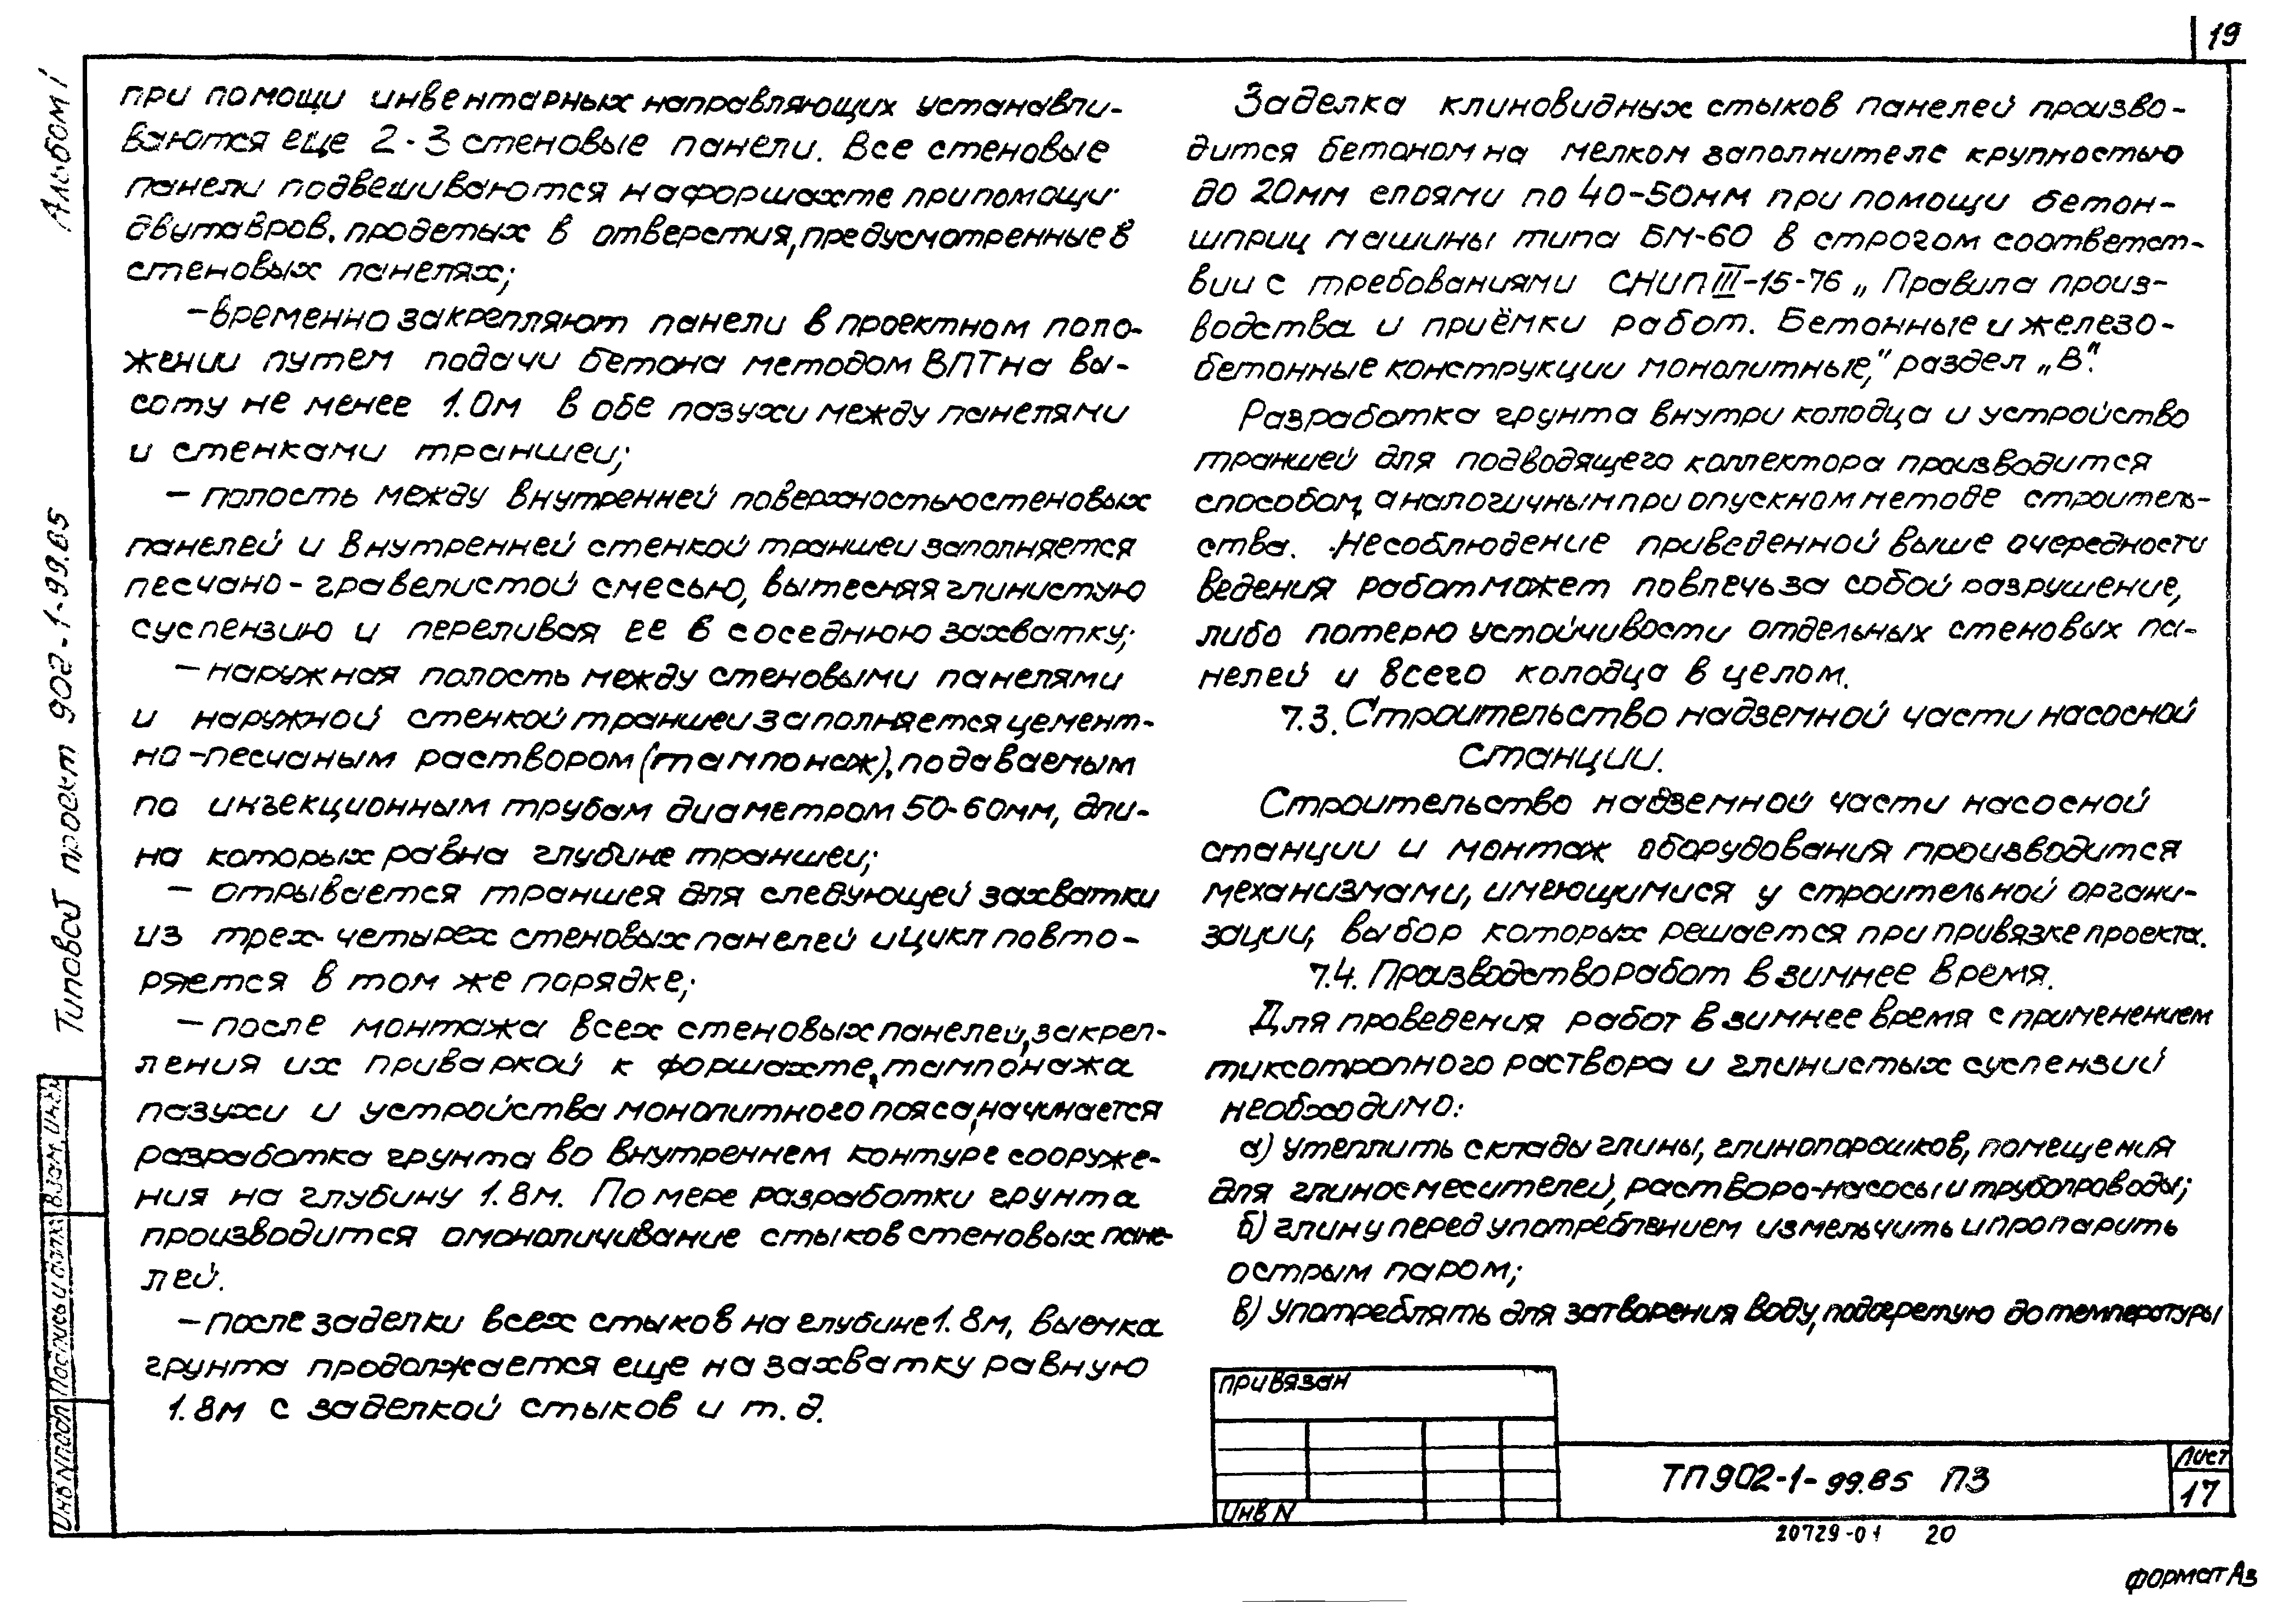 19
Альбом I
Типовой проект 902-1-99.85
при помощи инвентарных направляющих устанавли-
ваются еще 2-3 стеновые панели. Все стеновые
панели подвешиваются на форшахте при помощи
двутавров, продетых в отверстия, предусмотренные в
стеновых панелях;
-временно закрепляют панели в проектном поло-
жении путем подачи бетона методом ВПТ на вы-
соту не менее 1.0м в обе пазухи между панелями
и стенками траншеи;
- полость между внутренней поверхностью стеновых
панелей и внутренней стенкой траншеи заполняется
песчано-гравелистой смесью, вытесняя глинистую
суспензию и переливая ее в соседнюю захватку;
- наружная полость между стеновыми панелями
и наружной стенкой траншеи заполняется цемент-
но-песчаным раствором (тампонаж), подаваемым
по инъекционным трубам диаметром 50-60мм, дли-
на которых равна глубине траншеи;
- отрывается траншея для следующей захватки
из трех-четырех стеновых панелей и цикл повто-
ряется в том же порядке;
- после монтажа всех стеновых панелей, закреп-
ления их приваркой к форшахте, тампонажа
пазухи и устройства монолитного пояса, начинается
разработка грунта во внутреннем контуре сооруже-
ния на глубину 1.8м. По мере разработки грунта
производится омоноличивание стыков стеновых пане-
лей.
- после заделки всех стыков на глубине 1.8м, выемка
грунта продолжается еще на захватку равную
1.8м с заделкой стыков и т.д.
Заделка клиновидных стыков панелей произво-
дится бетоном на мелком заполнителе крупностью
до 20мм слоями по 40-50мм при помощи бетон-
шприц машины типа БМ-60 в строгом соответст-
вии с требованиями СНиП III-15-76 „Правила произ-
водства и приёмки работ. Бетонные и железо-
бетонные конструкции монолитные," раздел „В".
Разработка грунта внутри колодца и устройство
траншей для подводящего коллектора производится
способом, аналогичным при опускном методе строитель-
ства. Несоблюдение приведенной выше очередности
ведения работ может повлечь за собой разрушение,
либо потерю устойчивости отдельных стеновых па-
нелей и всего колодца в целом.
7.3. Строительство надземной части насосной
станции.
Строительство надземной части насосной
станции и монтаж оборудования производится
механизмами, имеющимися у строительной органи-
зации, выбор которых решается при привязке проекта.
7.4. Производство работ в зимнее время.
Для проведения работ в зимнее время с применением
тиксотропного раствора и глинистых суспензий
необходимо:
а) утеплить склады глины, глинопорошков, помещения
для глиносмесителей, растворо-насосы и трубопроводы;
б) глину перед употреблением измельчить и пропарить
острым паром;
в) употреблять для затворения воду, подогретую до температуры
привязан
Инв N
ТП 902-1-99.85 ПЗ
Лист
17
Взам. инв. N
Подпись и дата
Инв N подл
20729-01 20
формат А3